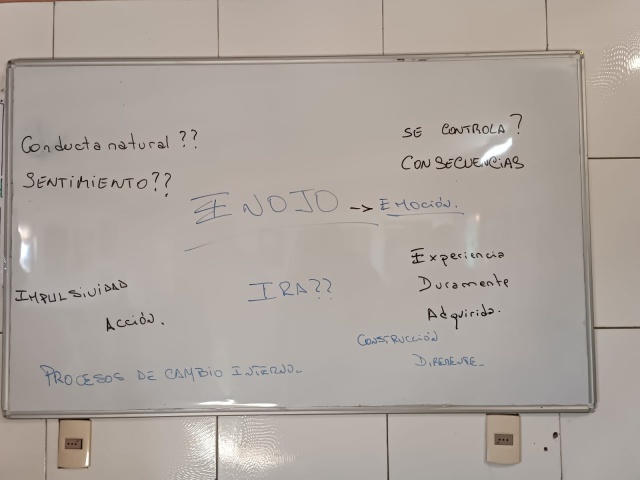 Conducta natural ??
SENTIMIENTO??
SE CONTROLA?
CONSECUENCIAS
ENOJO -> EMOCIÓN.
IMPULSIVIDAD
ACCIÓN.
IRA??
Experiencia
Duramente
Adquirida.
CONSTRUCCIÓN
DIFERENTE_
PROCESOS DE CAMBIO INTERNO_